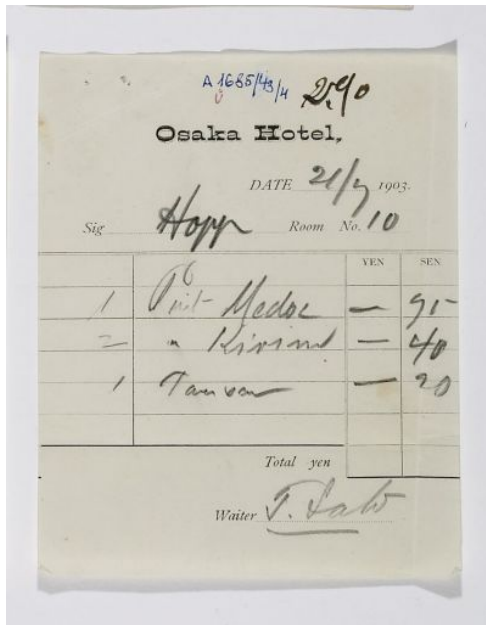 A 1685/43/4
Osaka Hotel,
DATE 21/7 1903.
Sig Hopp Room No. 10
YEN SEN
1 Pint Medoc — 95
2 " Kirin — 40
1 Tansan — 20
Total yen
Waiter